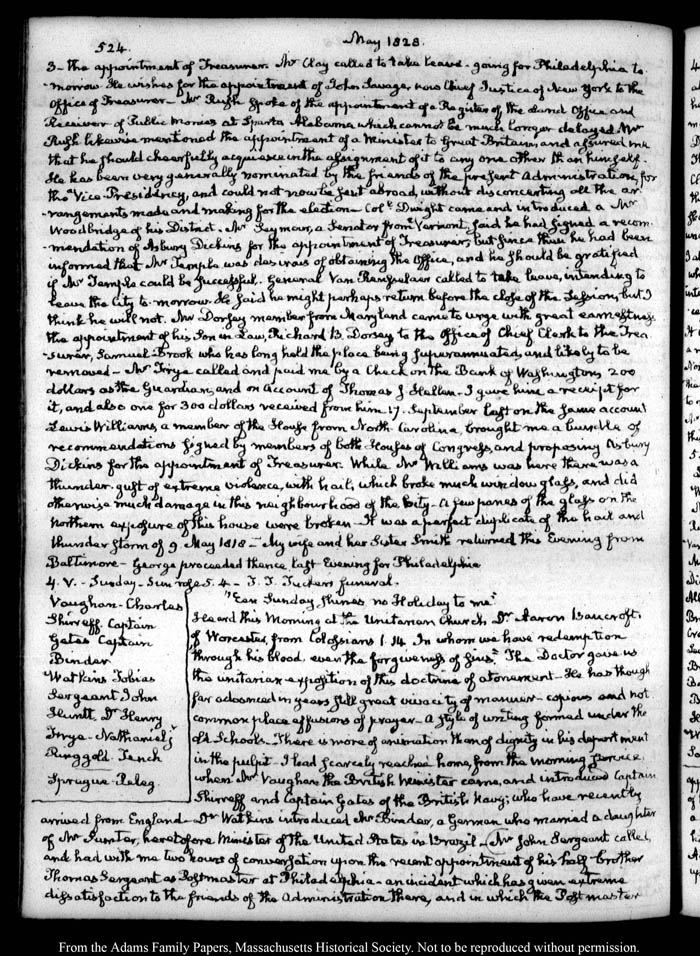 524.
May 1828.
3- the appointment of Treasurer. Mr Clay called to take leave- going for Philadelphia to-
morrow. He wishes for the appointment of John Savage, now Chief Justice of New York to the
Office of Treasurer- Mr Rush spoke of the appointment of a Register of the Land Office and
Receiver of Public Monies at Sparta Alabama which cannot be much longer delayed Mr
Rush likewise mentioned the appointment of a Minister to Great Britain, and assured me
that he should cheerfully acquiesce in the assignment of it to any one other than himself.
He has been very generally nominated by the friends of the present Administration, for
the Vice-Presidency, and could not now be sent abroad, without disconcerting all the ar-
rangements made and making for the election- Coll. Dwight came and introduced a Mr
Woodbridge of his District. Mr Seymour, a Senator from Vermont, said he had signed a recom-
mendation of Asbury Dickins for the appointment of Treasurer, but since then he had been
informed that Mr Temple was desirous of obtaining the Office, and he should be gratified
if Mr Temple could be successful. General Van Rensselaer called to take leave, intending to
leave the City to-morrow. He said he might perhaps return before the close of the Session, but I
think he will not. Mr Dorsey member from Maryland came to urge with great earnestness
the appointment of his Son in Law, Richard B. Dorsey to the Office of Chief Clerk to the Trea-
surer, Samuel Brook who has long held the place being superannuated, and likely to be
removed- Mr Frye called and paid me by a Check on the Bank of Washington, 200
dollars as the Guardian, and on account of Thomas J Hellen- I gave him a receipt for
it, and also one for 300 dollars received from him 17. September last on the same account
Lewis Williams, a member of the House from North-Carolina, brought me a bundle of
recommendations signed by members of both Houses of Congress, and proposing Asbury
Dickins for the appointment of Treasurer. While Mr Williams was here there was a
thunder-gust of extreme violence, with hail, which broke much window glass, and did
otherwise much damage in this neighbourhood of the City- A few panes of the glass on the
Northern exposure of this house were broken- It was a perfect duplicate of the hail and
thunder storm of 9. May 1818- My wife and her Sister Smith returned this Evening from
Baltimore- George proceeded thence last Evening for Philadelphia
4. V.- Sunday- Sun rose 5.4- T. T. Tucker's funeral.
Vaughan- Charles
Shirreff- Captain
Gates Captain
Binder
Watkins Tobias
Sergeant John
Huntt Dr Henry
Frye- Nathaniel jr
Ringgold- Tench
Sprague- Peleg
"Een Sunday shines no Holiday to me"
Heard this Morning at the Unitarian Church, Dr Aaron Bancroft,
of Worcester, from Colossians 1. 14. In whom we have redemption
through his blood, even the forgiveness of sins". The Doctor gave us
the unitarian exposition of this doctrine of atonement- He has though
far advanced in years still great vivacity of manner- copious and not
common place effusions of prayer- A style of writing formed under the
old Schools- There is more of animation than of dignity in his deportment
in the pulpit- I had scarcely reached home, from the morning service
when Mr Vaughan the British Minister came, and introduced Captain
Shirreff and Captain Gates of the British Navy; who have recently
arrived from England- Dr Watkins introduced Mr Binder, a German who married a daughter
of Mr Sumter, heretofore Minister of the United States in Brazil- Mr John Sergeant called,
and had with me two hours of conversation upon the recent appointment of his half-brother
Thomas Sergeant as Postmaster at Philadelphia- an incident which has given extreme
dissatisfaction to the friends of the Administration there, and in which the Postmaster
From the Adams Family Papers, Massachusetts Historical Society. Not to be reproduced without permission.